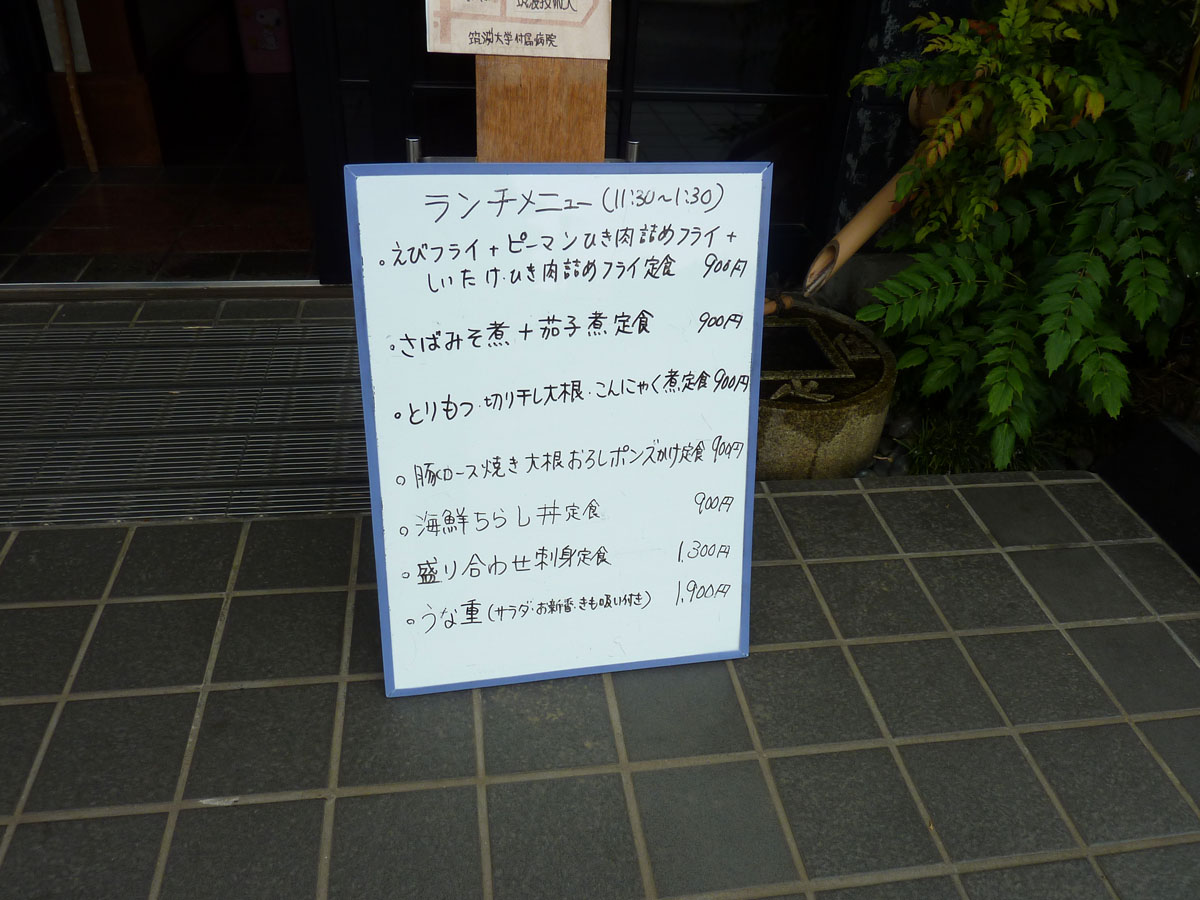 筑波大学付属病院
ランチメニュー(11:30～1:30)
。えびフライ+ピーマンひき肉詰めフライ+
しいたけ・ひき肉詰めフライ定食 900円
。さばみそ煮+茄子煮定食 900円
。とりもつ・切り干し大根・こんにゃく煮定食900円
。豚ロース焼き大根おろしポンズかけ定食900円
。海鮮ちらし丼定食 900円
。盛り合わせ刺身定食 1.300円
。うな重(サラダ・お新香・きも吸い付き) 1.900円